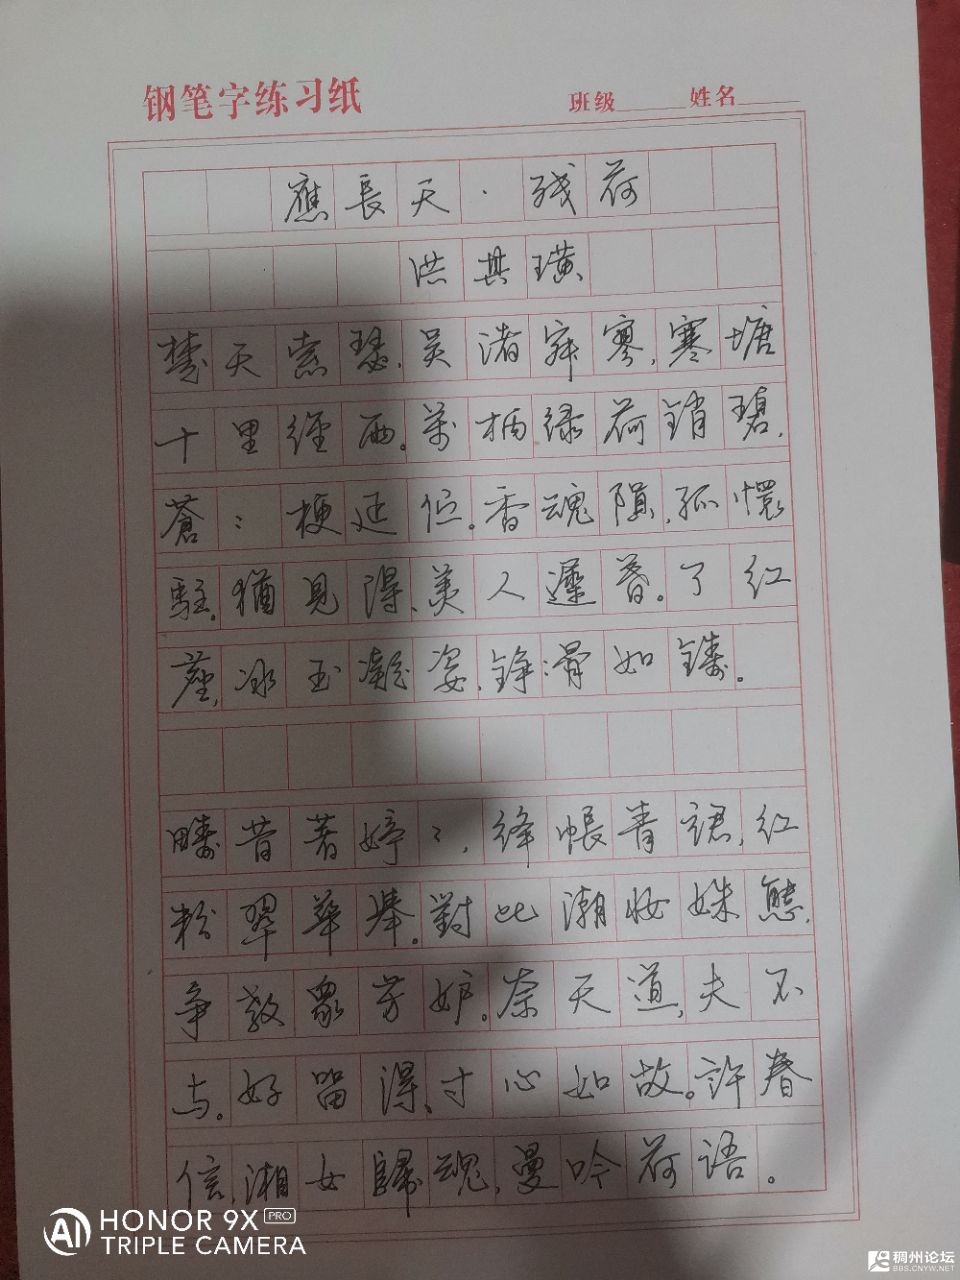 钢笔字练习纸 班级 姓名
應長天·残荷
洪其璜
楚天索瑟,吴渚寂寥,寒塘
十里经雨。萬柄绿荷销碧,
蒼:梗延伫。香魂隕,孤懷
駐。猶見得、美人遲暮。了红
塵,冰玉凝姿,錚滑如鑄。
疇昔著婷:,绛帳青裙,红
粉翠華舉。對比潮妝姝態,
争教衆芳妒。奈天道,夫不
与。好留得、寸心如故。許春
信,湘女歸魂,曼吟荷语。
HONOR 9X PRO
TRIPLE CAMERA
稠州论坛
BBS.CNYW.NET